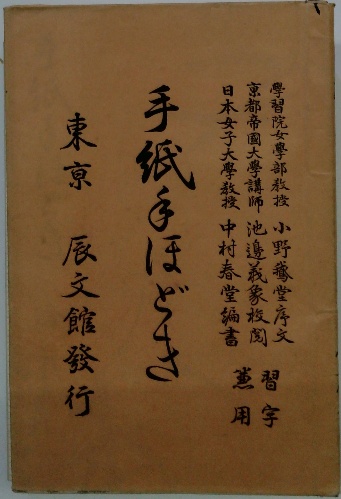 學習院女學部教授 小野鵞堂序文
京都帝國大學講師 池邊義象校閲
日本女子大學教授 中村春堂編書
習字
兼用
手紙手ほどき
東京 辰文館發行